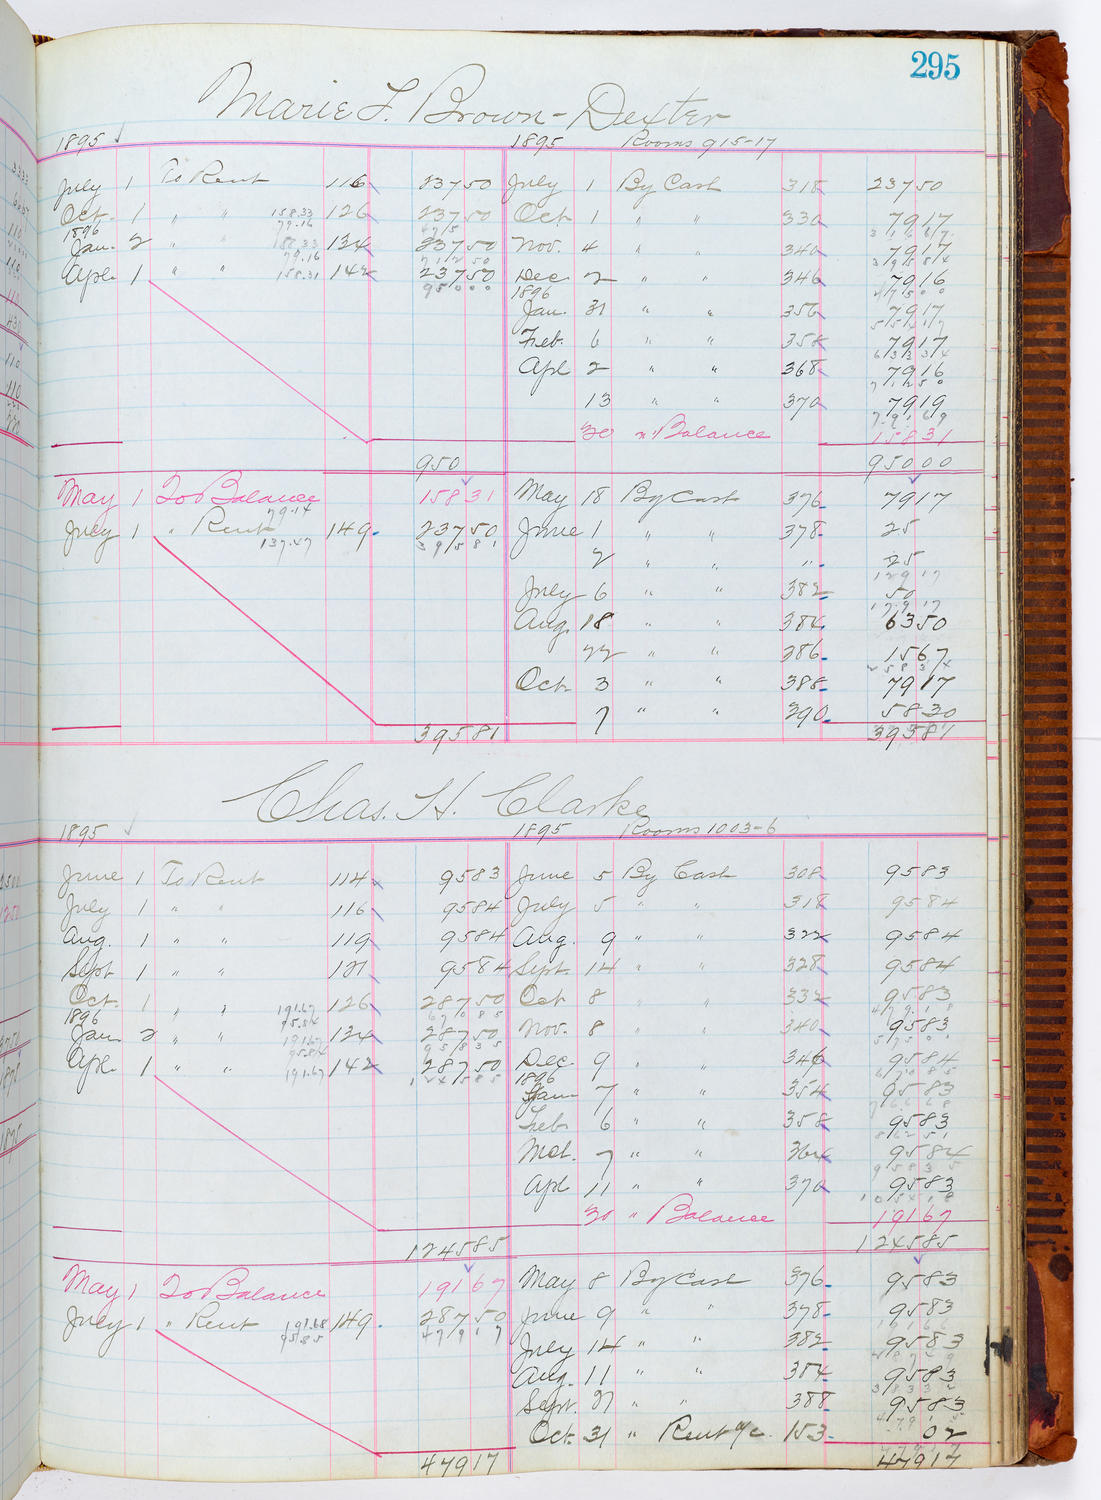 295
Marie L. Brown-Dexter
1895 1895 Rooms 915-17
July 1 To Rent 116 23750 July 1 By Cash 318 23750
Oct. 1 " " 158.33 79.16 126 23750 Oct. 1 " " 330 7917
1896
Jan. 2 " " 158.33 79.16 134 23750 Nov. 4 " " 340 7917
Apl. 1 " " 158.31 142 23750 Dec 2 " " 346 7916
95000 1896
Jan. 31 " " 356 7917
Feb. 6 " " 358 7917
Apl 2 " " 368 7916
13 " " 370 7919
30 " Balance 15831
950 95000
May 1 To Balance 15831 May 18 By Cash 376 7917
July 1 " Rent 79.14 137.47 149 23750 June 1 " " 378 25
39581 2 " " " 25
July 6 " " 382 50
Aug. 18 " " 384 6350
22 " " 386 1567
Oct. 3 " " 388 7917
7 " " 390 5830
39581 39581
Chas. H. Clarke
1895 1895 Rooms 1003-6
June 1 To Rent 114 9583 June 5 By Cash 308 9583
July 1 " " 116 9584 July 5 " " 318 9584
Aug. 1 " " 119 9584 Aug. 9 " " 322 9584
Sept 1 " " 121 9584 Sept. 14 " " 328 9584
Oct. 1 " " 191.67 95.84 126 28750 Oct 8 " " 332 9583
1896
Jan 2 " " 191.67 95.84 134 28750 Nov. 8 " " 340 9583
Apl. 1 " " 191.67 142 28750 Dec. 9 " " 346 9584
124585 1896
Jan 7 " " 354 9583
Feb. 6 " " 358 9583
Mch. 7 " " 364 9584
Apl 11 " " 370 9583
30 " Balance 19167
124585 124585
May 1 To Balance 19167 May 8 By Cash 376 9583
July 1 " Rent 191.68 95.85 149 28750 June 9 " " 378 9583
47917 July 14 " " 382 9583
Aug. 11 " " 384 9583
Sept. 21 " " 388 9583
Oct. 31 " Rent a/c 153 02
47917 47917